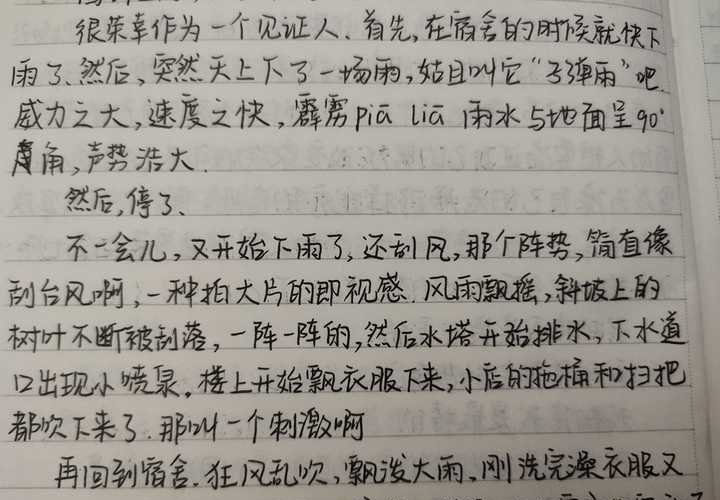 很荣幸作为一个见证人、首先,在宿舍的时候就快下
雨了、然后,突然天上下了一场雨,姑且叫它“子弹雨”吧.
威力之大,速度之快,霹雳 piā liā 雨水与地面呈90°
角,声势浩大.
然后,停了、
不一会儿,又开始下雨了,还刮风,那个阵势,简直像
刮台风啊,一种拍大片的即视感.风雨飘摇,斜坡上的
树叶不断被刮落,一阵一阵的,然后水塔开始排水,下水道
口出现小喷泉.楼上开始飘衣服下来,小店的拖桶和扫把
都吹下来了.那叫一个刺激啊
再回到宿舍.狂风乱吹,飘泼大雨,刚洗完澡衣服又